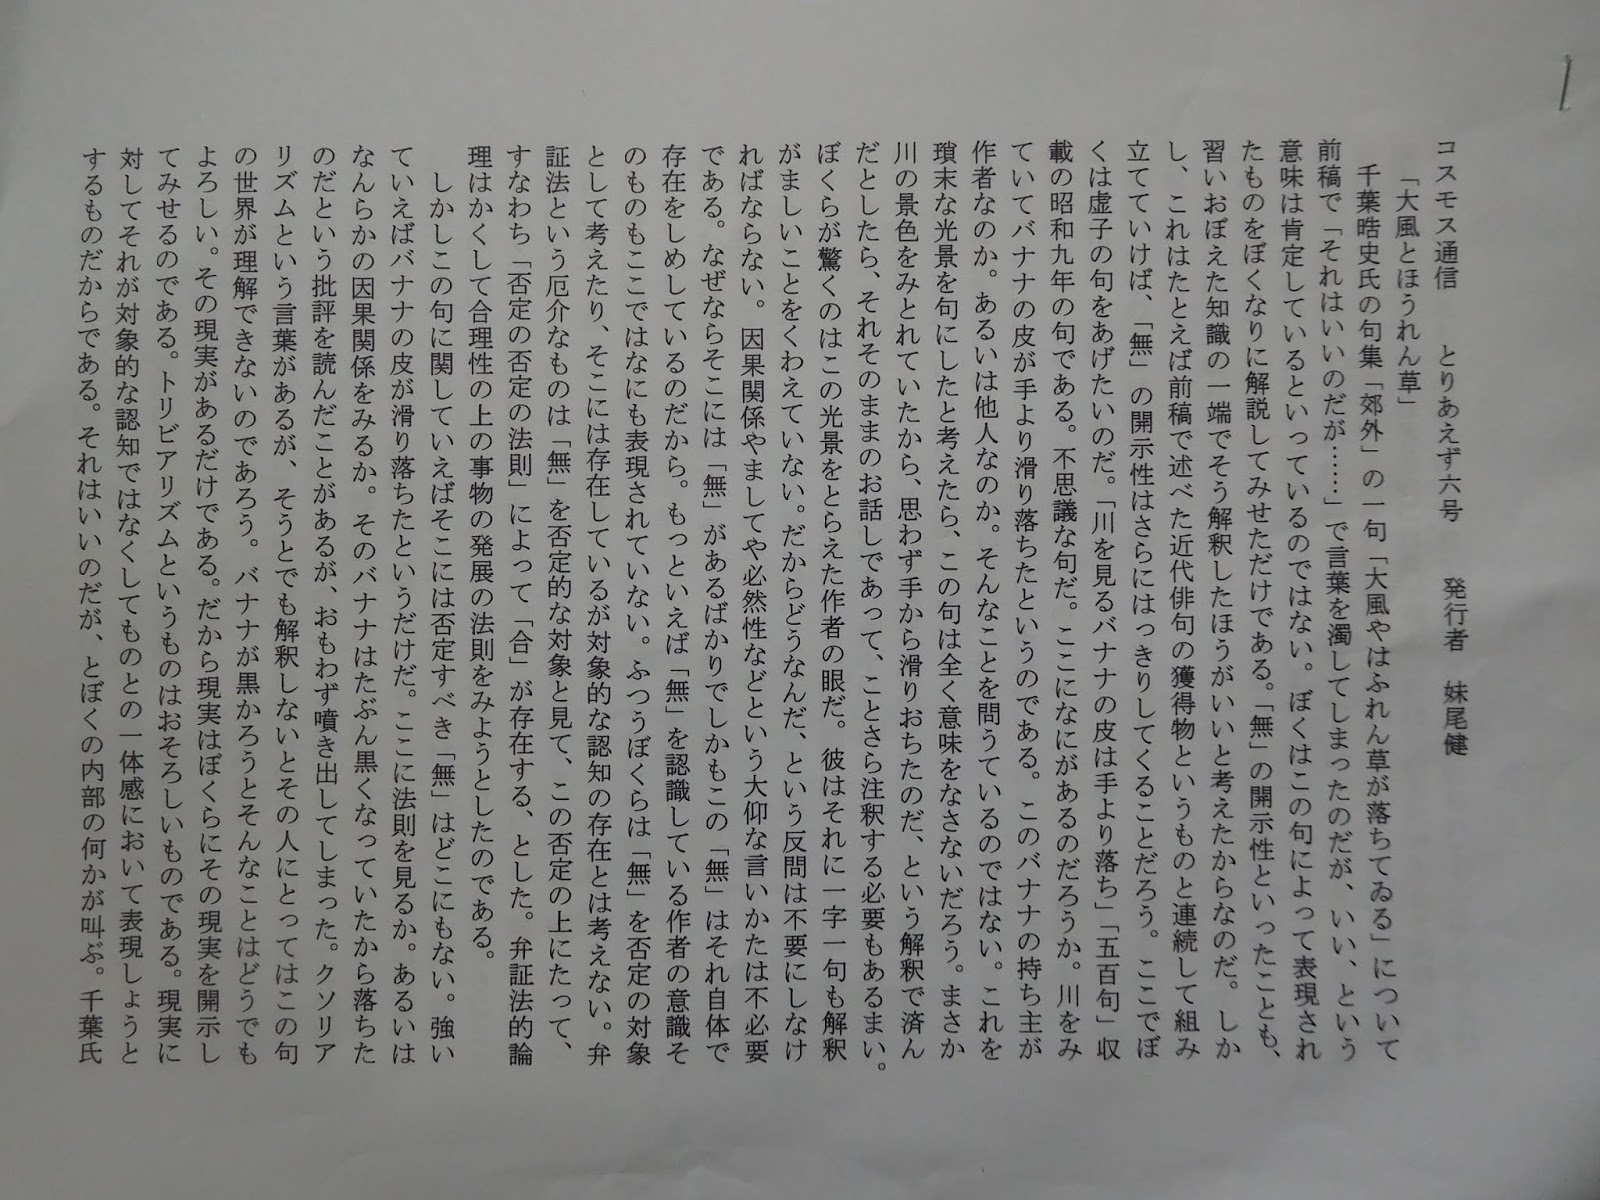 コスモス通信　とりあえず六号　発行者　妹尾健
「大風とほうれん草」
千葉晧史氏の句集「郊外」の一句「大風やはふれん草が落ちてゐる」について
前稿で「それはいいのだが……」で言葉を濁してしまったのだが、いい、という
意味は肯定しているといっているのではない。ぼくはこの句によって表現され
たものをぼくなりに解説してみせただけである。「無」の開示性といったことも、
習いおぼえた知識の一端でそう解釈したほうがいいと考えたからなのだ。しか
し、これはたとえば前稿で述べた近代俳句の獲得物というものと連続して組み
立てていけば、「無」の開示性はさらにはっきりしてくることだろう。ここでぼ
くは虚子の句をあげたいのだ。「川を見るバナナの皮は手より落ち」「五百句」収
載の昭和九年の句である。不思議な句だ。ここになにがあるのだろうか。川をみ
ていてバナナの皮が手より滑り落ちたというのである。このバナナの持ち主が
作者なのか。あるいは他人なのか。そんなことを問うているのではない。これを
瑣末な光景を句にしたと考えたら、この句は全く意味をなさないだろう。まさか
川の景色をみとれていたから、思わず手から滑りおちたのだ、という解釈で済ん
だとしたら、それそのままのお話しであって、ことさら注釈する必要もあるまい。
ぼくらが驚くのはこの光景をとらえた作者の眼だ。彼はそれに一字一句も解釈
がましいことをくわえていない。だからどうなんだ、という反問は不要にしなけ
ればならない。因果関係やましてや必然性などという大仰な言いかたは不必要
である。なぜならそこには「無」があるばかりでしかもこの「無」はそれ自体で
存在をしめしているのだから。もっといえば「無」を認識している作者の意識そ
のものもここではなにも表現されていない。ふつうぼくらは「無」を否定の対象
として考えたり、そこには存在しているが対象的な認知の存在とは考えない。弁
証法という厄介なものは「無」を否定的な対象と見て、この否定の上にたって、
すなわち「否定の否定の法則」によって「合」が存在する、とした。弁証法的論
理はかくして合理性の上の事物の発展の法則をみようとしたのである。
しかしこの句に関していえばそこには否定すべき「無」はどこにもない。強い
ていえばバナナの皮が滑り落ちたというだけだ。ここに法則を見るか。あるいは
なんらかの因果関係をみるか。そのバナナはたぶん黒くなっていたから落ちた
のだという批評を読んだことがあるが、おもわず噴き出してしまった。クソリア
リズムという言葉があるが、そうとでも解釈しないとその人にとってはこの句
の世界が理解できないのであろう。バナナが黒かろうとそんなことはどうでも
よろしい。その現実があるだけである。だから現実はぼくらにその現実を開示し
てみせるのである。トリビアリズムというものはおそろしいものである。現実に
対してそれが対象的な認知ではなくしてものとの一体感において表現しょうと
するものだからである。それはいいのだが、とぼくの内部の何かが叫ぶ。千葉氏